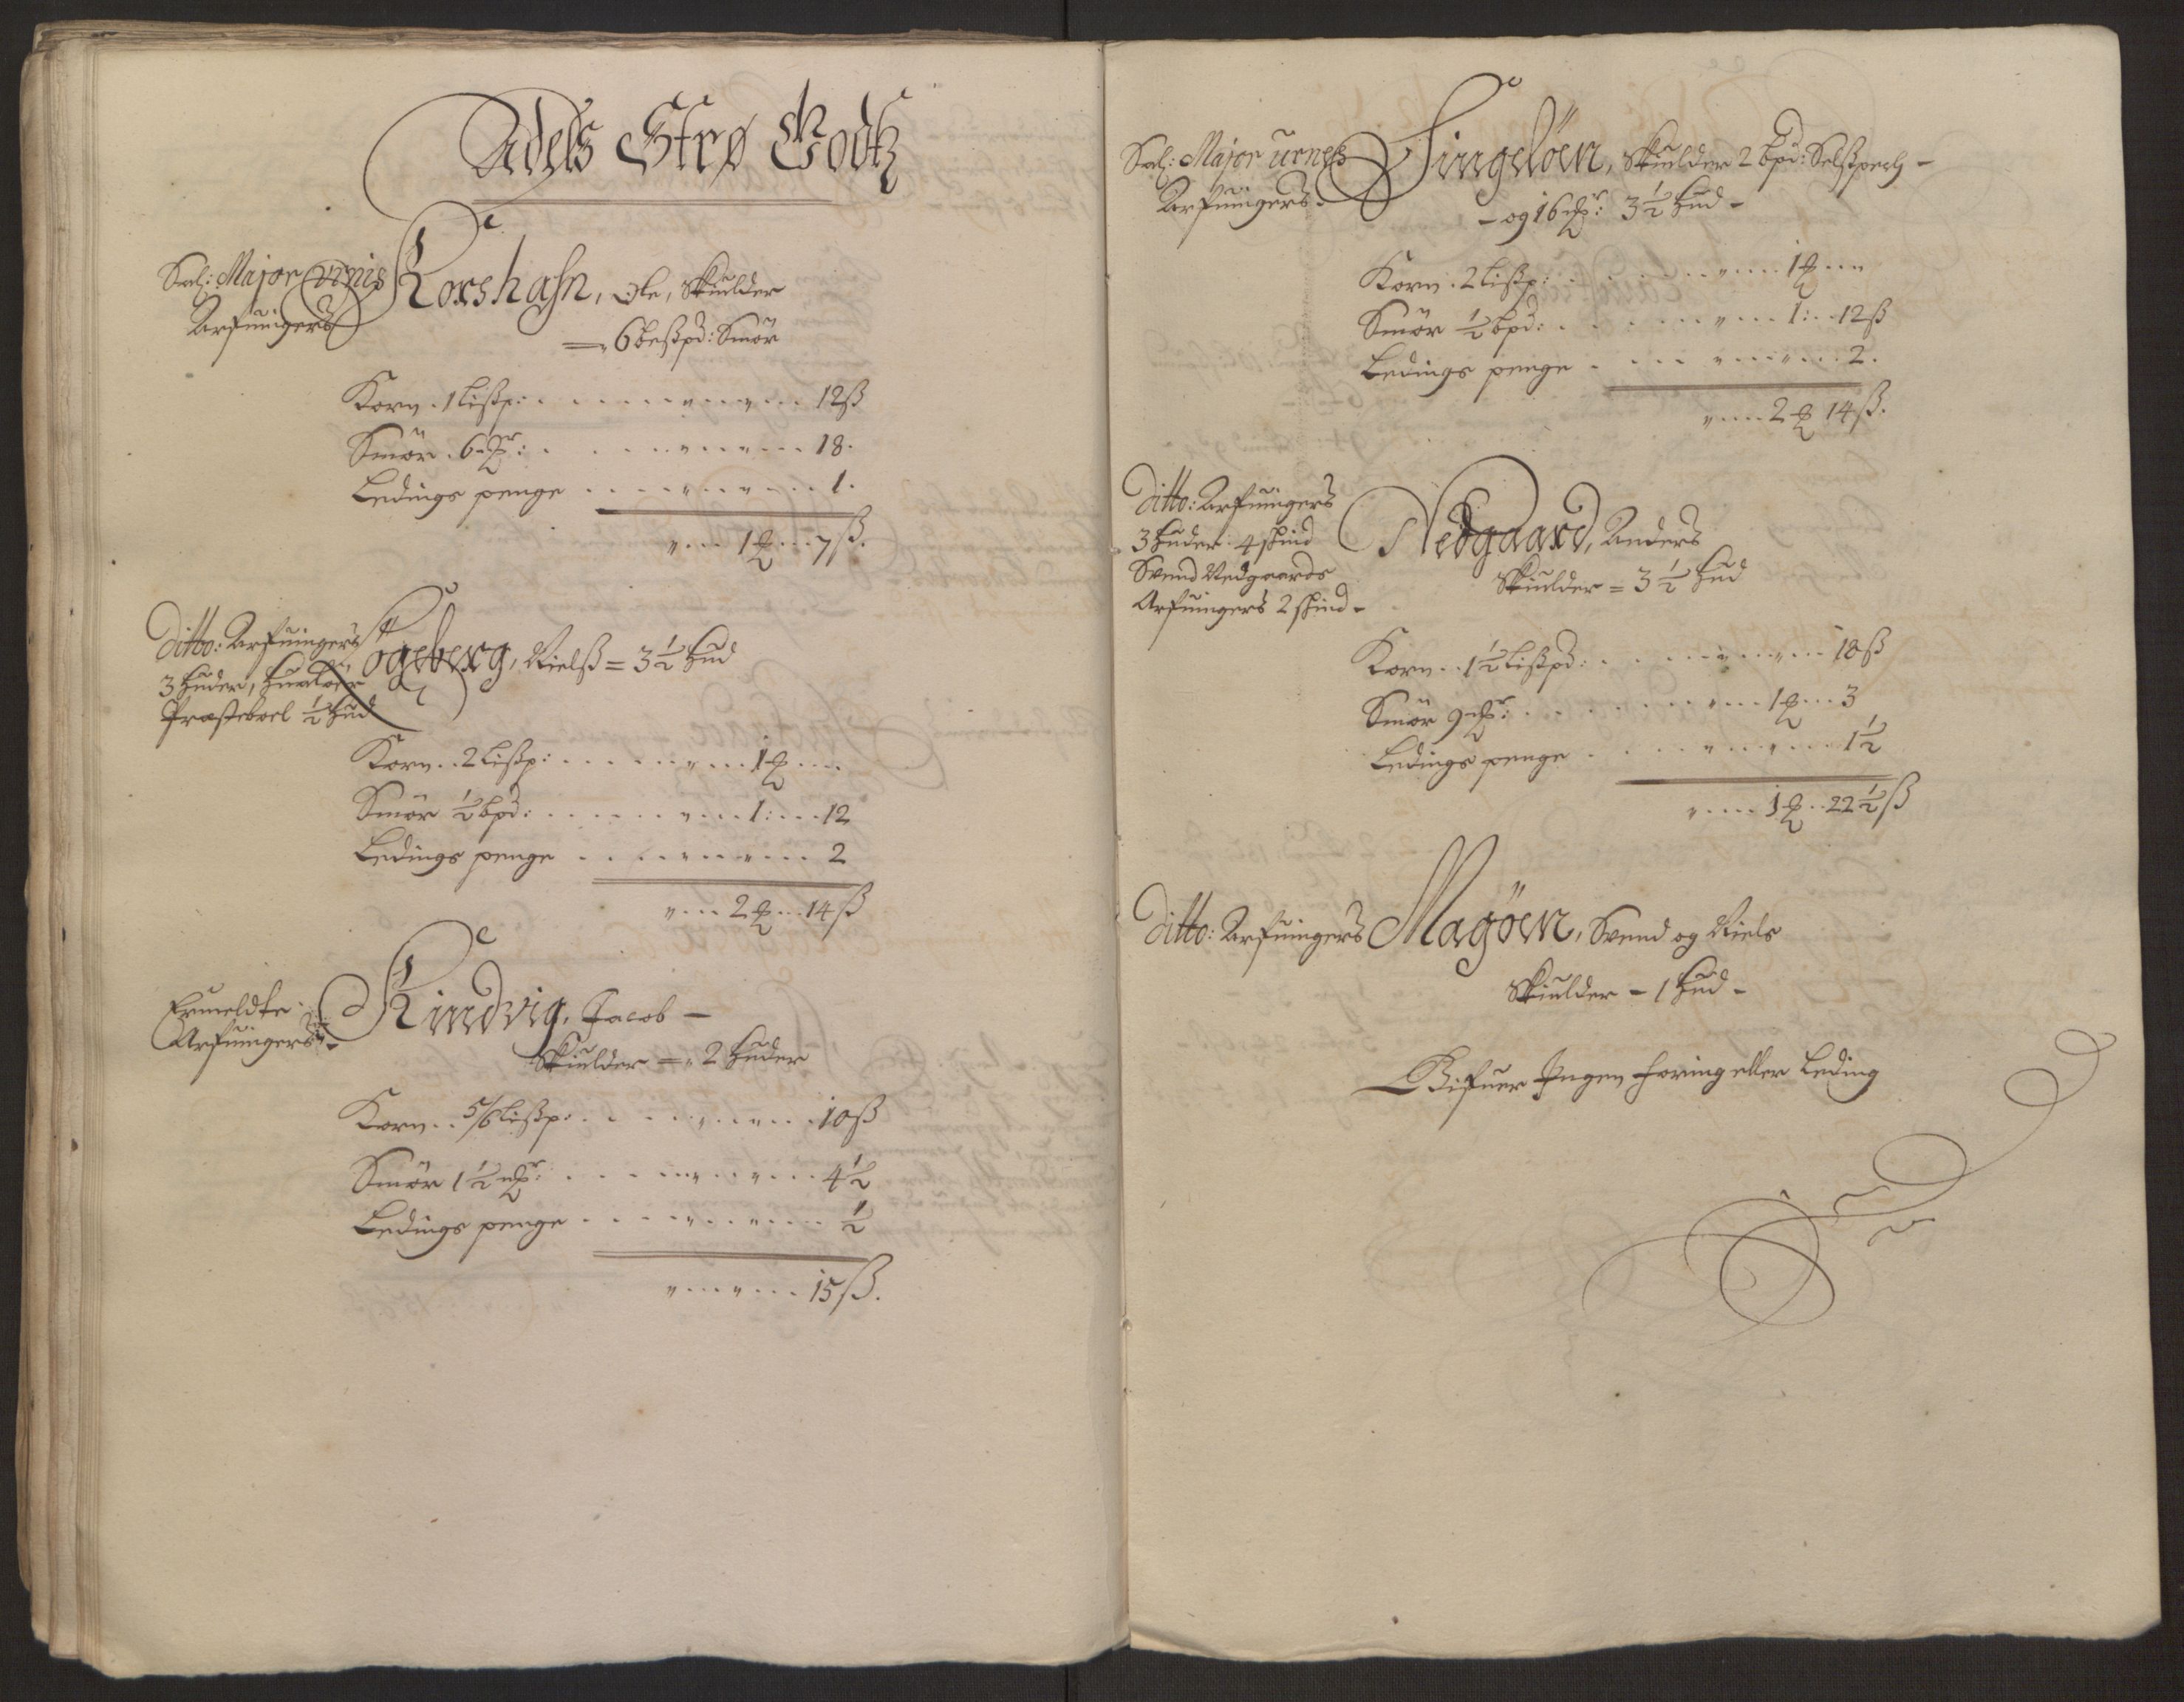 Adels Strø Godtz
Sal: Major Urnis
Arfuingers
Korshafn, Ole, Skiulder
= 6 beßpd: Smör
Korn . 1 Lißp: 12 ß
Smör . 6 mkr: 18.
Ledings penge 1.
1 R 7 ß.
Ditto: Arfuingers
3 huder, Hualöer
Præsteboel ½ hud
Ögeberg, Nielß = 3 ½ hud
Korn . 2 Lißp: 1 R
Smör ½ bpd: 1: 12
Ledings penge 2
2 R 14 ß
Ermeldte
Arfuingers
Kindvig, Jacob –
Skiulder = 2 huder
Korn . 5/6 Lißp: 10 ß
Smör 1 ½ mkr: 4 ½
Ledings penge ½
15 ß.
Sal: Major Urneß
Arfuingers
Singelöen, Skiulder 2 bpd:
– og 16 mkr: 3 ½ hud –
Korn . 2 Lißp: 1 R
Smör ½ bpd: 1: 12 ß
Ledings penge 2.
2 R 14 ß.
Ditto: Arfuingers
3 huder 4 skind
Svend Nedgaards
Arfuingers 2 skind –
Nedgaard, Anders
Skiulder = 3 ½ hud
Korn . 1 ½ Lißpd: 18 ß
Smör 9 mkr: 1 R 3
Ledings penge 1 ½
1 R 22 ½ ß
Ditto: Arfuingers
Magöen, Svend og Niels
Skiulder – 1 hud –
Gifuer Ingen foring eller Leding